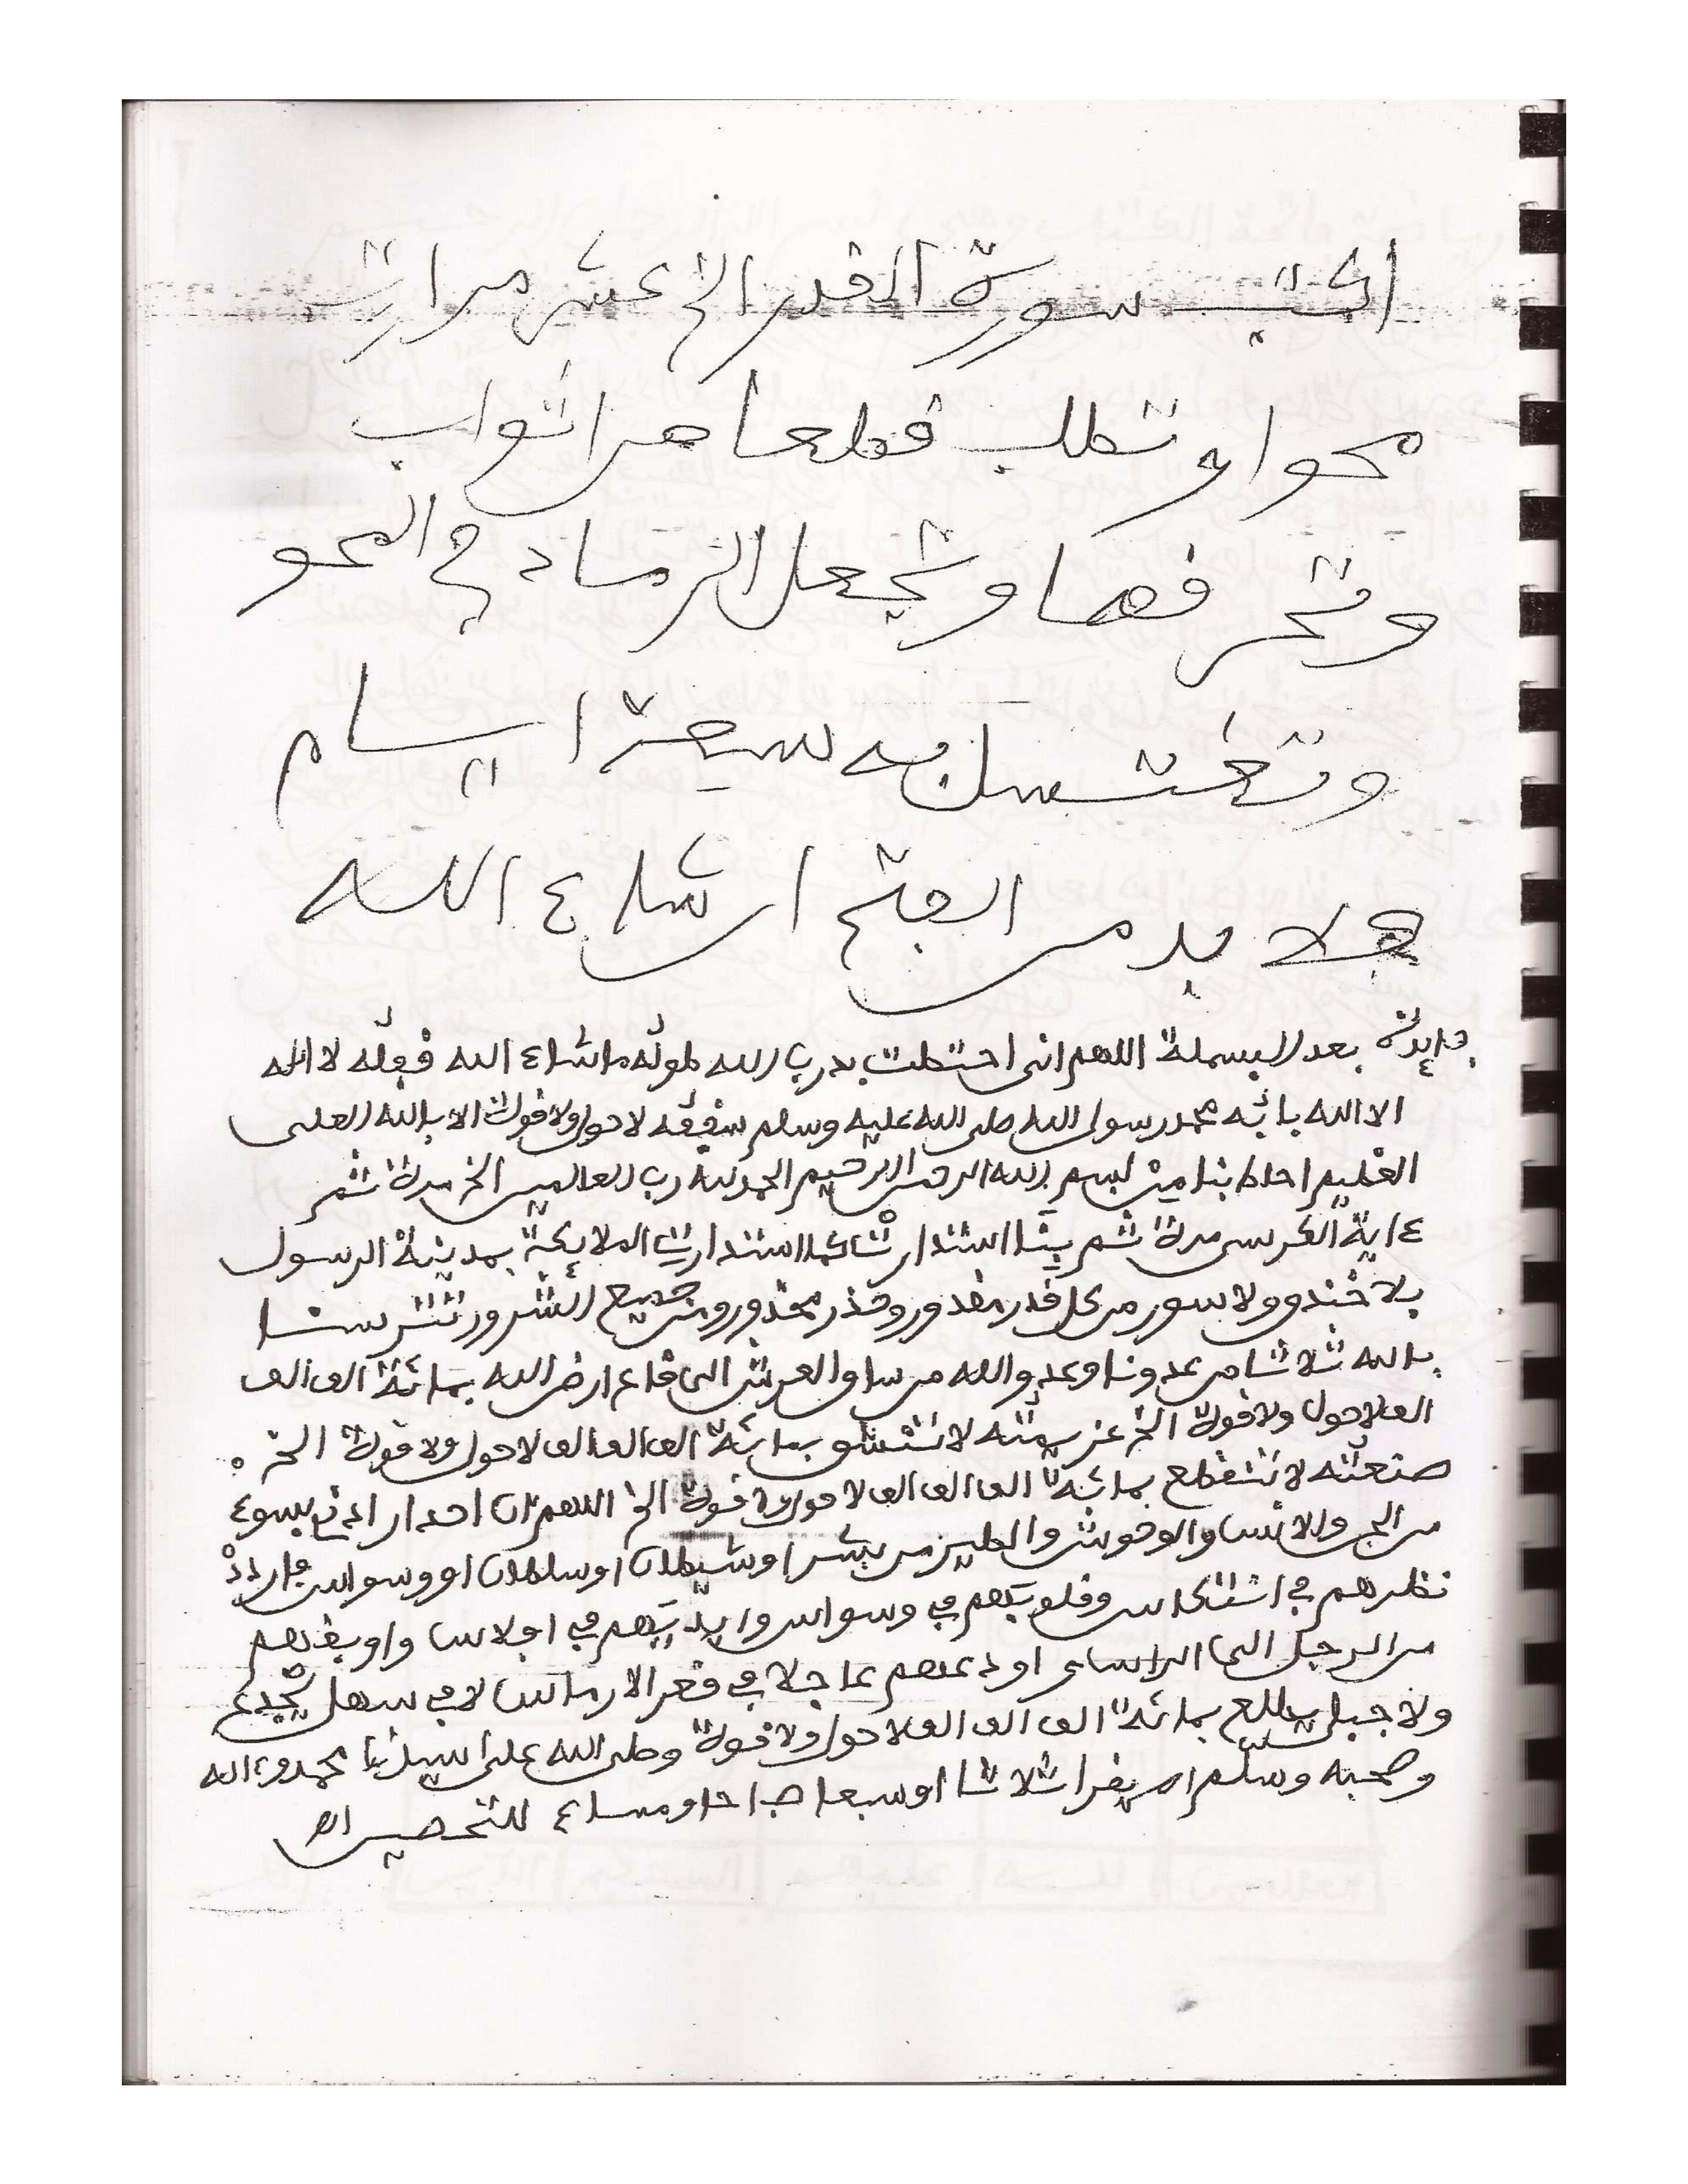 اكتب سورة القدر الخ عشر مرات
محوا و تطلب قطعا من اثواب
وتحرقها وتجعل الرماد في المحو
وتغتسل به سبعة ايام
فلا بد من الفتح ان شاء الله
فايدة بعد البسملة اللهم انى احتطت بدرب الله طوله ما شاء الله قفله لا اله
الا الله بابه محمد رسول الله صلى الله عليه وسلم سقفه لا حول ولا قوة الا بالله العلى
العظيم احاط بنا من بسم الله الرحمن الرحيم الحمد لله رب العالمين الخ مرة ثم
ءاية الكرسى مرة ثم بنا استدارت كما استدارت الملايكة بمدينة الرسول
بلا خندق ولا سور من كل قدر مقدور وحذر محذور ومن جميع الشرور تترسنا
بالله ثلاثا من عدونا وعدو الله من ساق العرش الى قاع ارض الله بمائة الف الف
الف لا حول ولا قوة الخ عزيمته لا تنشق بمائة الف الف الف لا حول ولا قوة الخ
صنعته لا تنقطع بمائة الف الف الف لا حول ولا قوة الخ اللهم ان احد ارادني بسوء
من الجن والانس والوحوش والطير من بشر او شيطان او سلطان او وسواس فاردد
نظرهم في انتكاس وقلوبهم في وسواس وايديهم في افلاس واوبقهم
من الرجل الى الراس او دعهم عاجلا في قعر الارماس لا في سهل يجدع
ولا جبل يطلع بمائة الف الف الف لا حول ولا قوة وصلى الله على سيدنا محمد وءاله
وصحبه وسلم اه يقرا ثلاثا او سبعا صباحا ومساء للتحصين اه